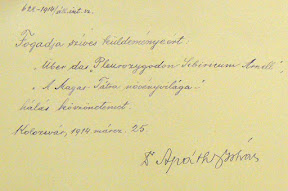 622-1914/ált. sz.
Fogadja szíves küldeményeért
"Über das "Pleurozygodon Sibiricum Arnell",
"A Magas-Tátra növényvilága"
hálás köszönetemet.
Kolozsvár, 1914 márcz. 25.
Dr Apáthy István